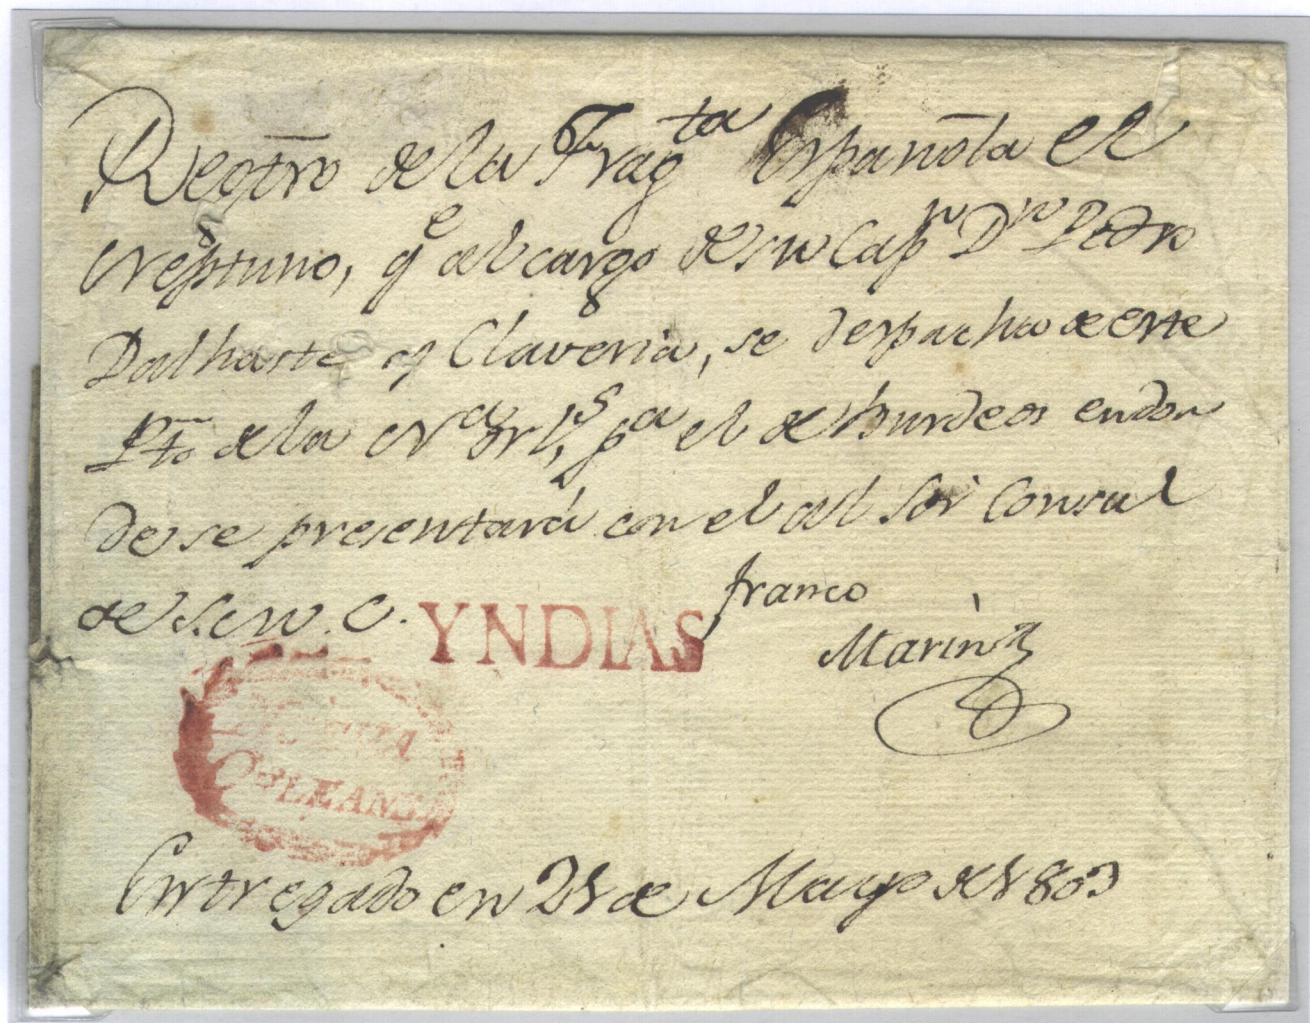 Regtro de la Fragta Española el
Neptuno, qe al cargo de su Capn Dn Pedro
Dalhaste y Claveria, se despacho de este
Pto de la Na Orls, pa el de Burdeos endon
de se presentará con el al Sor Consul
de S. M. C.
franco
YNDIAS
Marin
NUEVA
ORLEANS
Entregado en 21 de Mayo de 1803